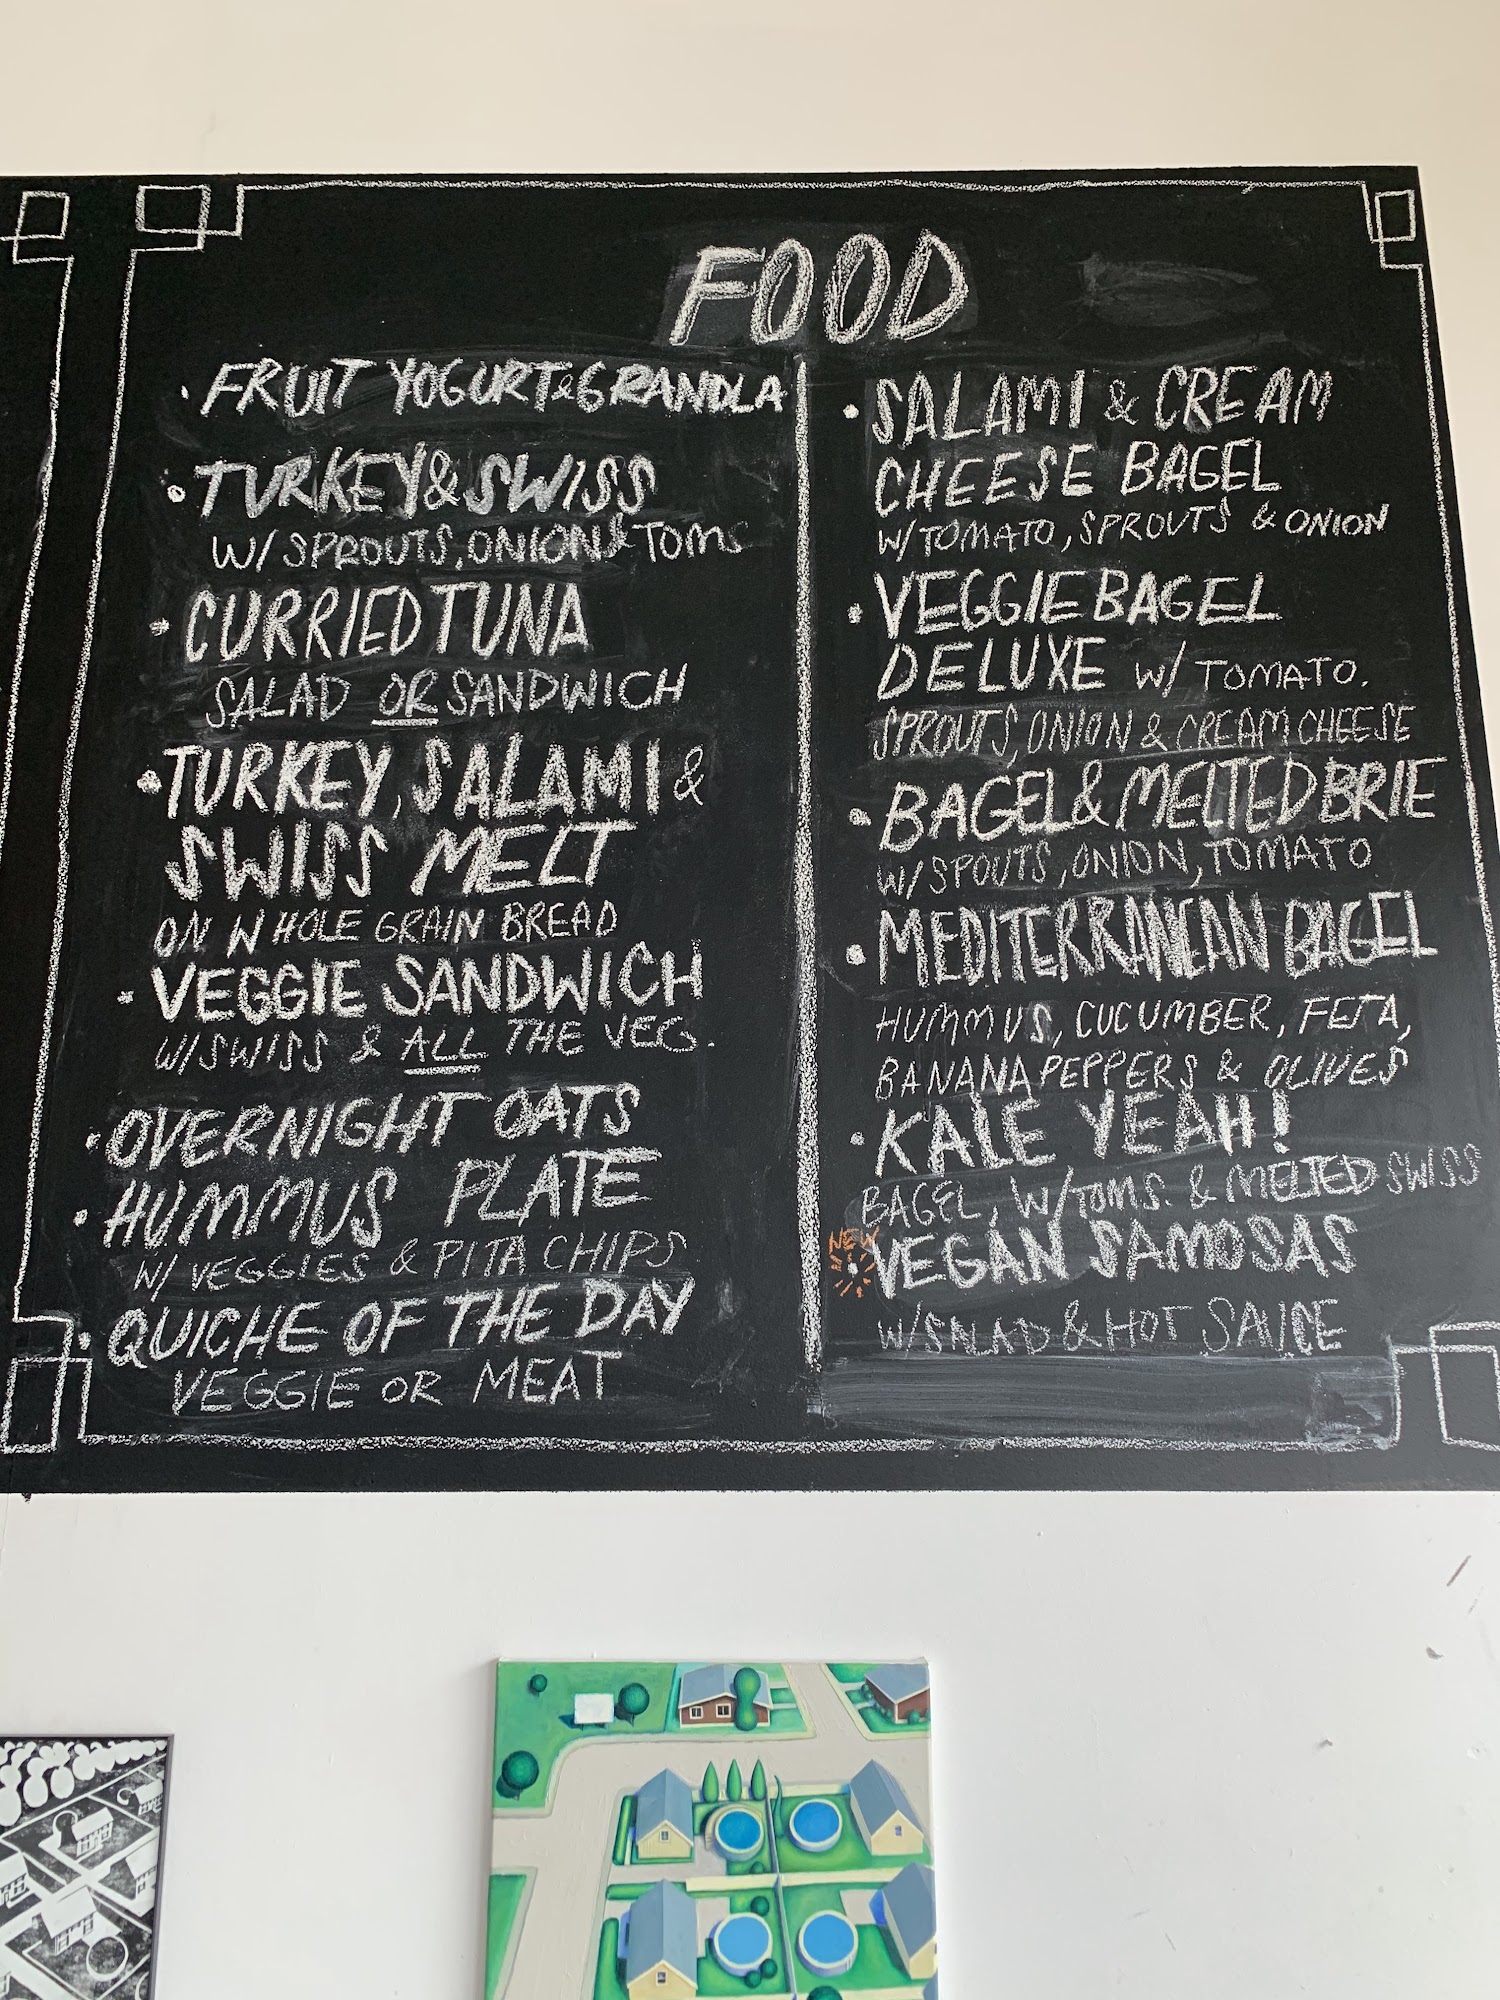 FOOD
• FRUIT YOGURT & GRANOLA
• TURKEY & SWISS
W/ SPROUTS, ONION & TOMS
• CURRIED TUNA
SALAD OR SANDWICH
• TURKEY, SALAMI &
SWISS MELT
ON WHOLE GRAIN BREAD
• VEGGIE SANDWICH
W/ SWISS & ALL THE VEG.
• OVERNIGHT OATS
• HUMMUS PLATE
W/ VEGGIES & PITA CHIPS
• QUICHE OF THE DAY
VEGGIE OR MEAT
• SALAMI & CREAM
CHEESE BAGEL
W/ TOMATO, SPROUTS & ONION
• VEGGIE BAGEL
DELUXE W/ TOMATO,
SPROUTS, ONION & CREAM CHEESE
• BAGEL & MELTED BRIE
W/ SPOUTS, ONION, TOMATO
• MEDITERRANEAN BAGEL
HUMMUS, CUCUMBER, FETA,
BANANA PEPPERS & OLIVES
• KALE YEAH!
BAGEL, W/ TOMS. & MELTED SWISS
NEW
• VEGAN SAMOSAS
W/ SALAD & HOT SAUCE